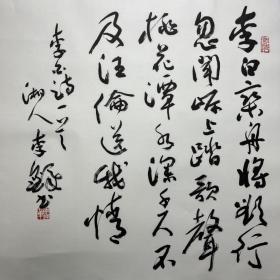 李白乘舟将欲行
忽闻岸上踏歌聲
桃花潭水深千尺不
及汪倫送我情
李白诗一首
湘人李 书